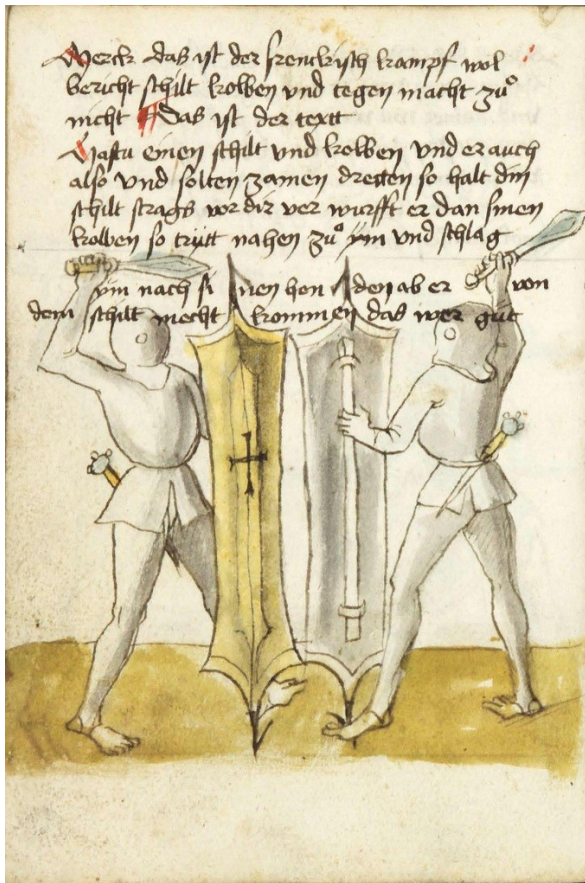 Merck das ist der frenckisch kampf wol
bericht schilt kolben und tegen macht zuͦ
nicht Das ist der textt
Hastu einen schilt und kolben und er auch
also und solten zamen dretten so halt din
schilt strags vor dir ver wurfft er dan sinen
kolben so tritt nahen zuͦ ym und schlag
ym nach si nen hon den ab er von
dem schilt mecht kommen das wer gut